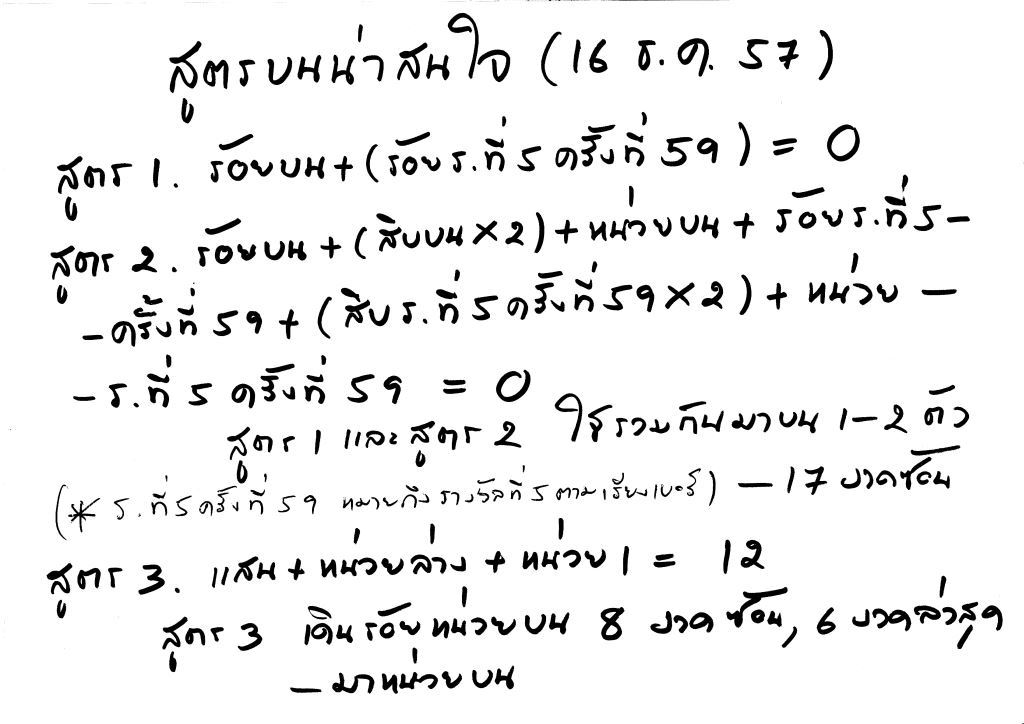 สูตรบนน่าสนใจ (16 ธ.ค. 57)
สูตร 1. ร้อยบน+(ร้อยร.ที่ 5 ครั้งที่ 59) = 0
สูตร 2. ร้อยบน + (สิบบน×2)+หน่วยบน + ร้อยร.ที่ 5-
-ครั้งที่ 59 + (สิบร.ที่ 5 ครั้งที่ 59×2) + หน่วย -
-ร.ที่ 5 ครั้งที่ 59 = 0
สูตร 1 และ สูตร 2 ใช้รวมกันมาบน 1-2 ตัว
(* ร.ที่ 5 ครั้งที่ 59 หมายถึงรางวัลที่ 5 ตามเรียงเบอร์) - 17 งวดซ้อน
สูตร 3. แสน + หน่วยล่าง + หน่วย 1 = 12
สูตร 3 เดินร้อยหน่วยบน 8 งวดซ้อน, 6 งวดล่าสุด
- มาหน่วยบน